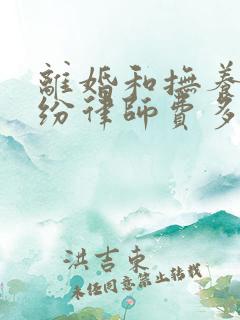 離婚和撫養
紛律師費多
洪吉東
未經同意禁止轉載